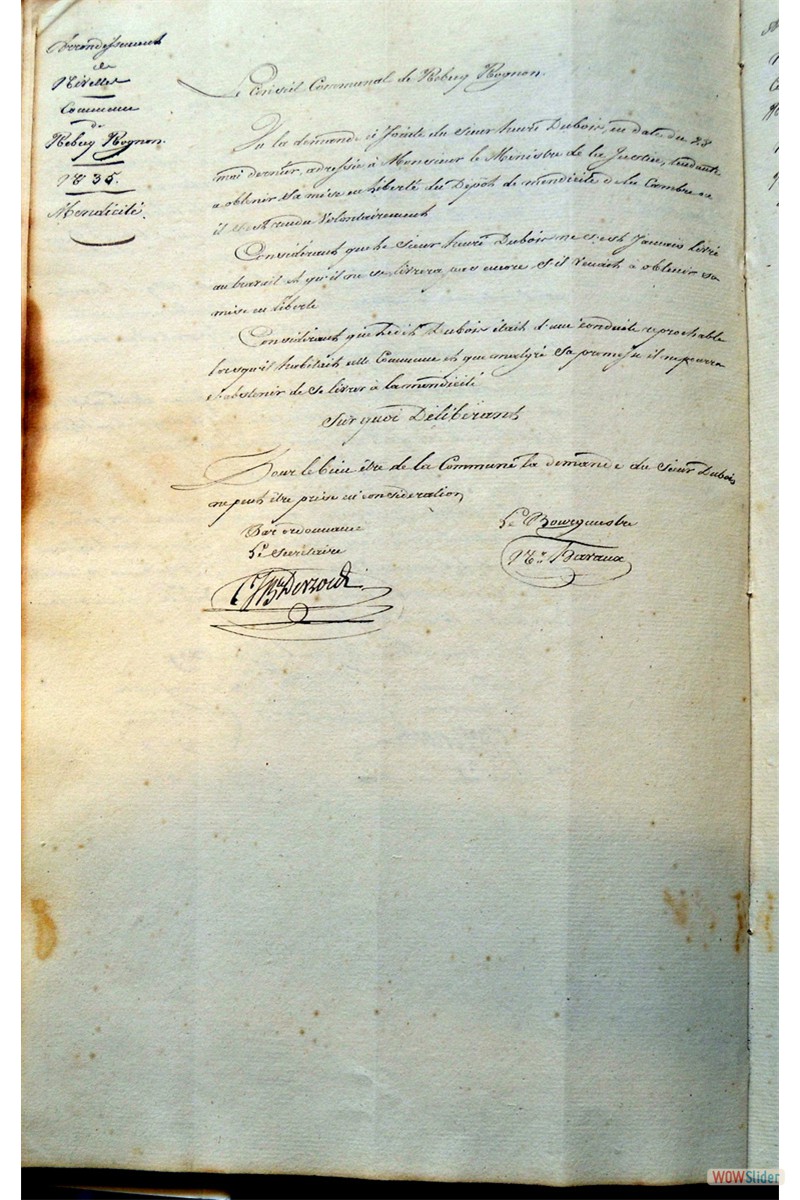 Arrondissement
de
Nivelles
Commune
de
Rebecq Rognon.
N° 35.
Mendicité.
Le Conseil Communal de Rebecq Rognon.
Vu la demande ci Jointe du sieur henri Dubois, en date du 28
mai dernier, adressée à Monsieur le Ministre de la Justice, tendante
a obtenir sa mise en liberté du Dépôt de mendicité de la Cambre ou
il s'est rendu Volontairement
Considérant que le sieur henri Dubois ne s'est Jamais livré
au travail et qu'il ne se livrera pas encore s'il venait à obtenir sa
mise en liberté
Considérant que ledit Dubois était d'une conduite reprochable
lorsqu'il habitait cette Commune et que malgré sa promesse il ne pourra
s'abstenir de se livrer à la mendicité
Sur quoi Délibérant
Pour le bien être de la Commune la demande du Sieur Dubois,
ne peut être prise en considération
Par ordonnance
Le Secrétaire
Le Bourgmestre
WOWSlider